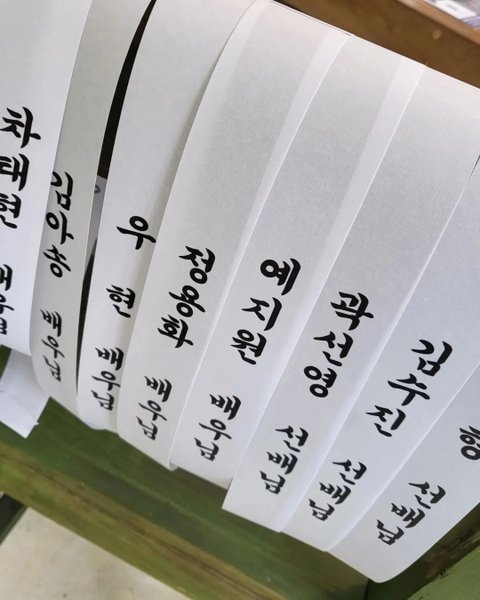 차태현 배우님
김아송 배우님
우 현 배우님
정용화 배우님
예지원 배우님
곽선영 선배님
김수진 선배님
선배님